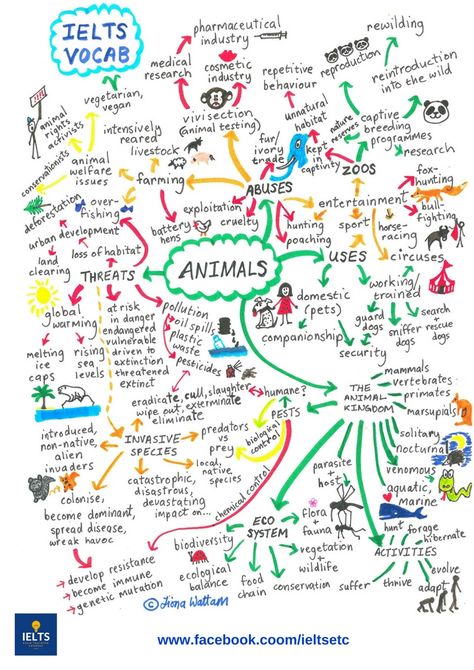 IELTS
VOCAB
pharmaceutical
industry
rewilding
medical
research
cosmetic
industry
repetitive
behaviour
reproduction
reintroduction
into the wild
vegetarian,
vegan
animal
rights
activists
vivisection
(animal testing)
unnatural
habitat
nature
reserves
captive
breeding
programmes
research
conservationists
intensively
reared
livestock
fur/
ivory
trade
kept
in
captivity
ZOOS
animal
welfare
issues
farming
ABUSES
entertainment
fox-
hunting
deforestation
over-
fishing
exploitation
sport
bull-
fighting
urban development
battery
hens
cruelty
hunting
poaching
horse-
racing
land
clearing
loss of habitat
USES
circuses
THREATS
ANIMALS
working/
trained
global
warming
at risk
in danger
endangered
vulnerable
driven to
extinction
threatened
extinct
pollution
oil spill,
plastic
waste
pesticides
domestic
(pets)
guard
dogs
sniffer
dogs
search
rescue
dogs
companionship
security
melting
ice
caps
rising
sea
levels
eradicate, cull, slaughter
wipe out, exterminate
eliminate
humane?
PESTS
THE
ANIMAL
KINGDOM
mammals
vertebrates
primates
marsupials
introduced,
non-native,
alien
invaders
INVASIVE
SPECIES
predators
vs
prey
biological
control
solitary
nocturnal
local,
native
species
venomous
aquatic,
marine
colonise,
become dominant
spread disease,
wreak havoc
catastrophic,
disastrous,
devastating
impact on...
chemical control
parasite
+
host
hunt
forage
hibernate
ECO
SYSTEM
flora
+
fauna
ACTIVITIES
biodiversity
vegetation
+
wildlife
develop resistance
become immune
genetic mutation
ecological
balance
food
chain
conservation
suffer
thrive
evolve
adapt
© Fiona Wattam
IELTS
www.facebook.coom/ieltsetc